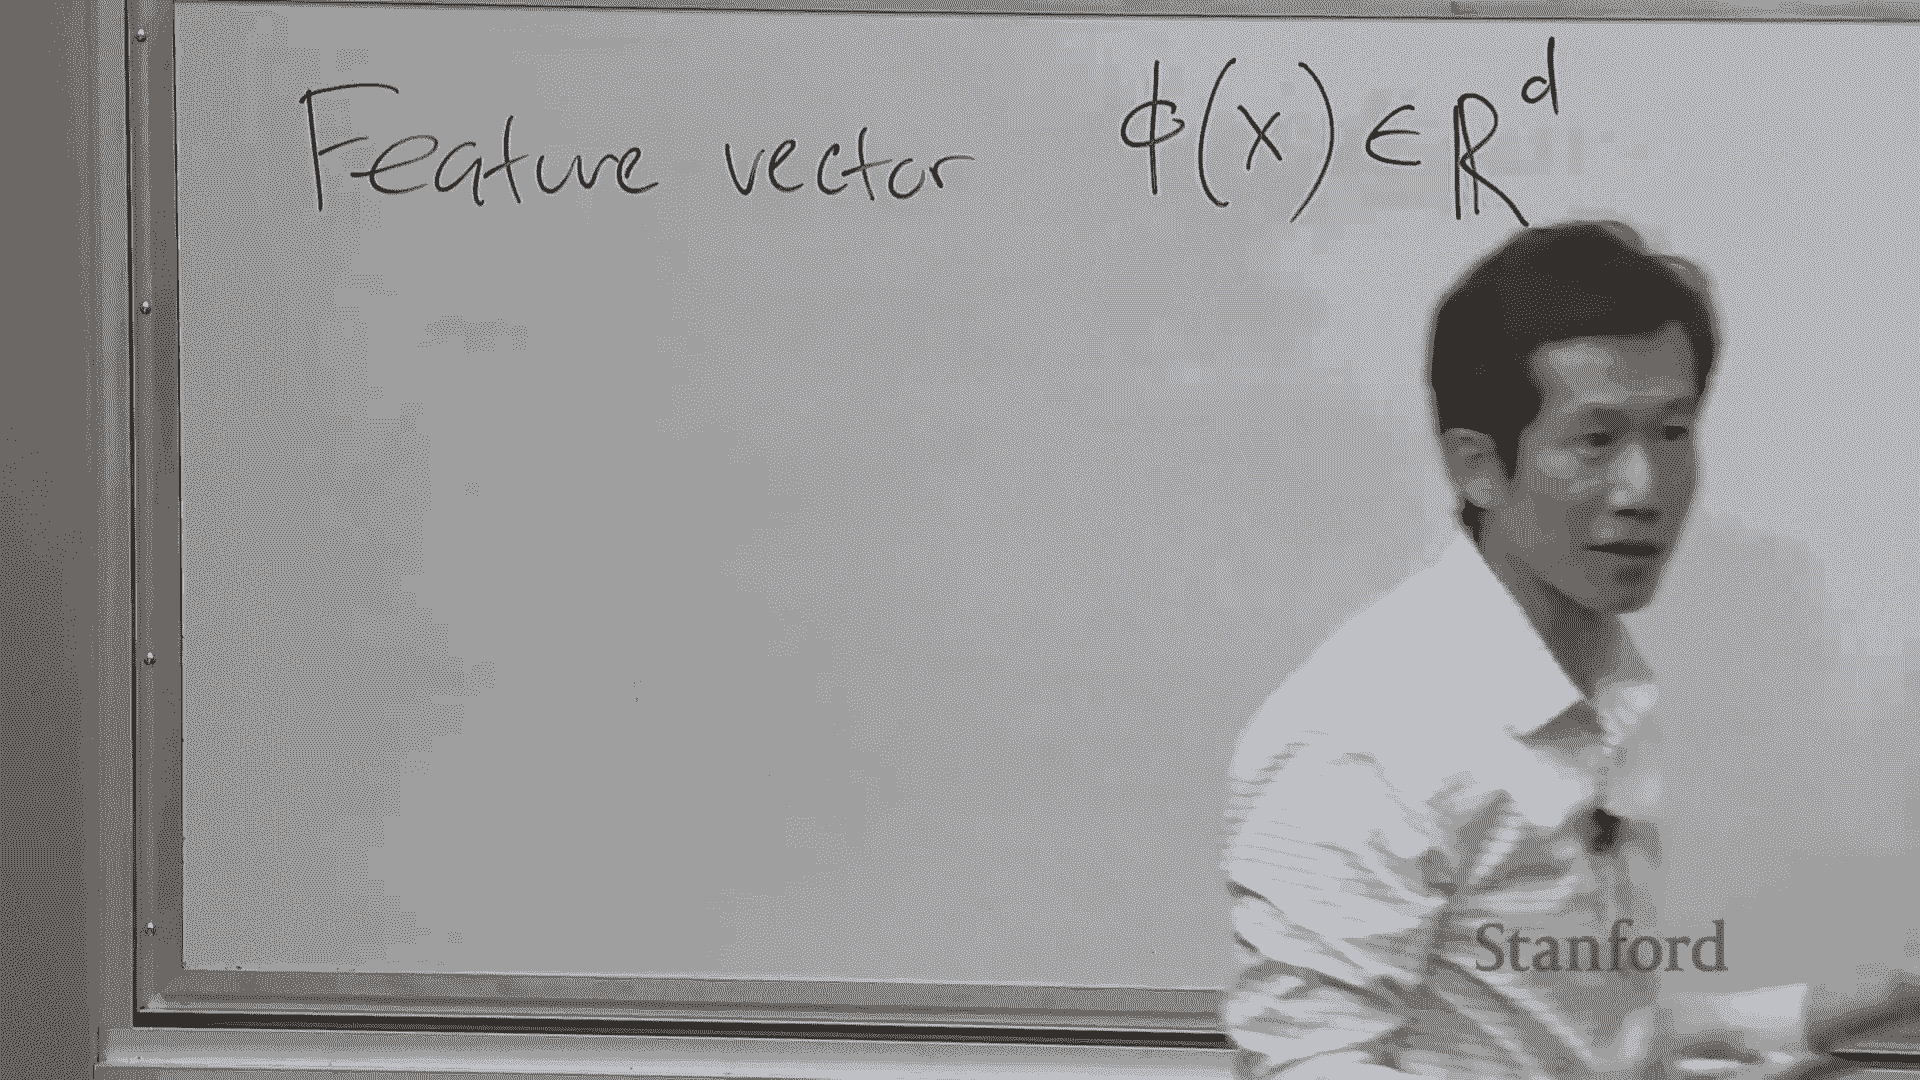 Feature vector ϕ(x) ∈ ℝᵈ
Stanford